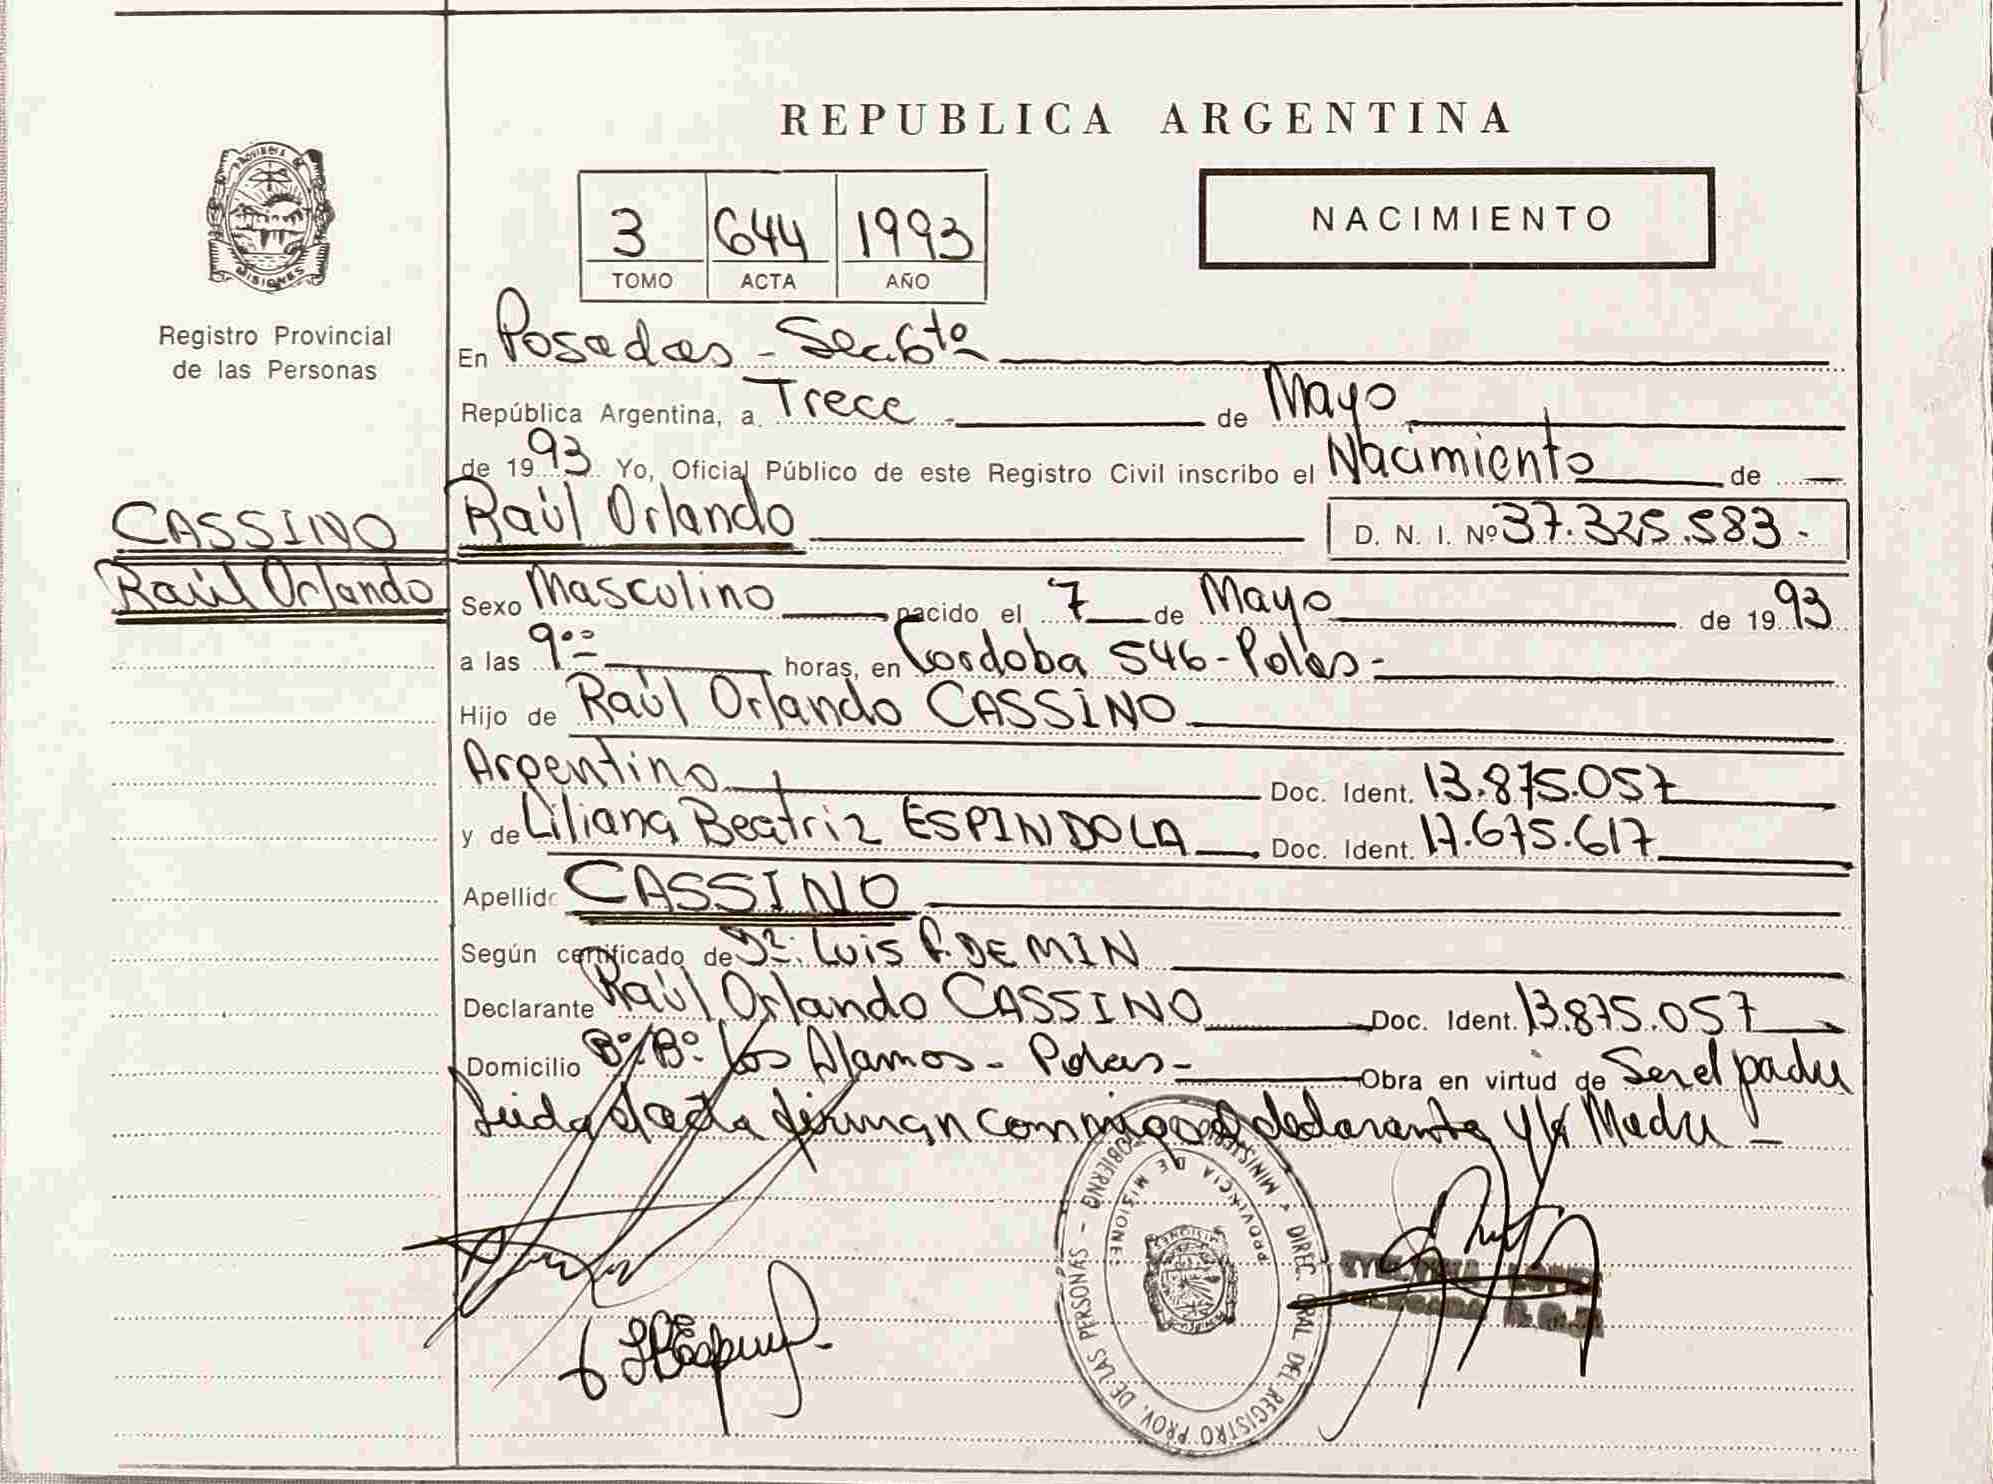 REPUBLICA ARGENTINA
PROVINCIA DE
MISIONES
Registro Provincial
de las Personas
3 644 1993
TOMO ACTA AÑO
NACIMIENTO
En Posadas - Sec. 6ta
República Argentina, a Trece de Mayo
de 1993 Yo, Oficial Público de este Registro Civil inscribo el Nacimiento de
CASSINO
Raúl Orlando
Raúl Orlando D. N. I. Nº 37.325.583 -
Sexo Masculino nacido el 7 de Mayo de 1993
a las 9 horas, en Cordoba 546 - Pdas -
Hijo de Raúl Orlando CASSINO
Argentino Doc. Ident. 13.875.057
y de Liliana Beatriz ESPINDOLA Doc. Ident. 17.675.617
Apellido CASSINO
Según certificado de Dr. Luis A. DE MIN
Declarante Raúl Orlando CASSINO Doc. Ident. 13.875.057
Domicilio Bº Los Alamos - Pdas - Obra en virtud de Ser el padre
Leida el acta firman conmigo el declarante y la Madre -
MINISTERIO GOBIERNO - DIREC. GRAL. DEL REGISTRO PROV. DE LAS PERSONAS -
PROVINCIA DE MISIONES